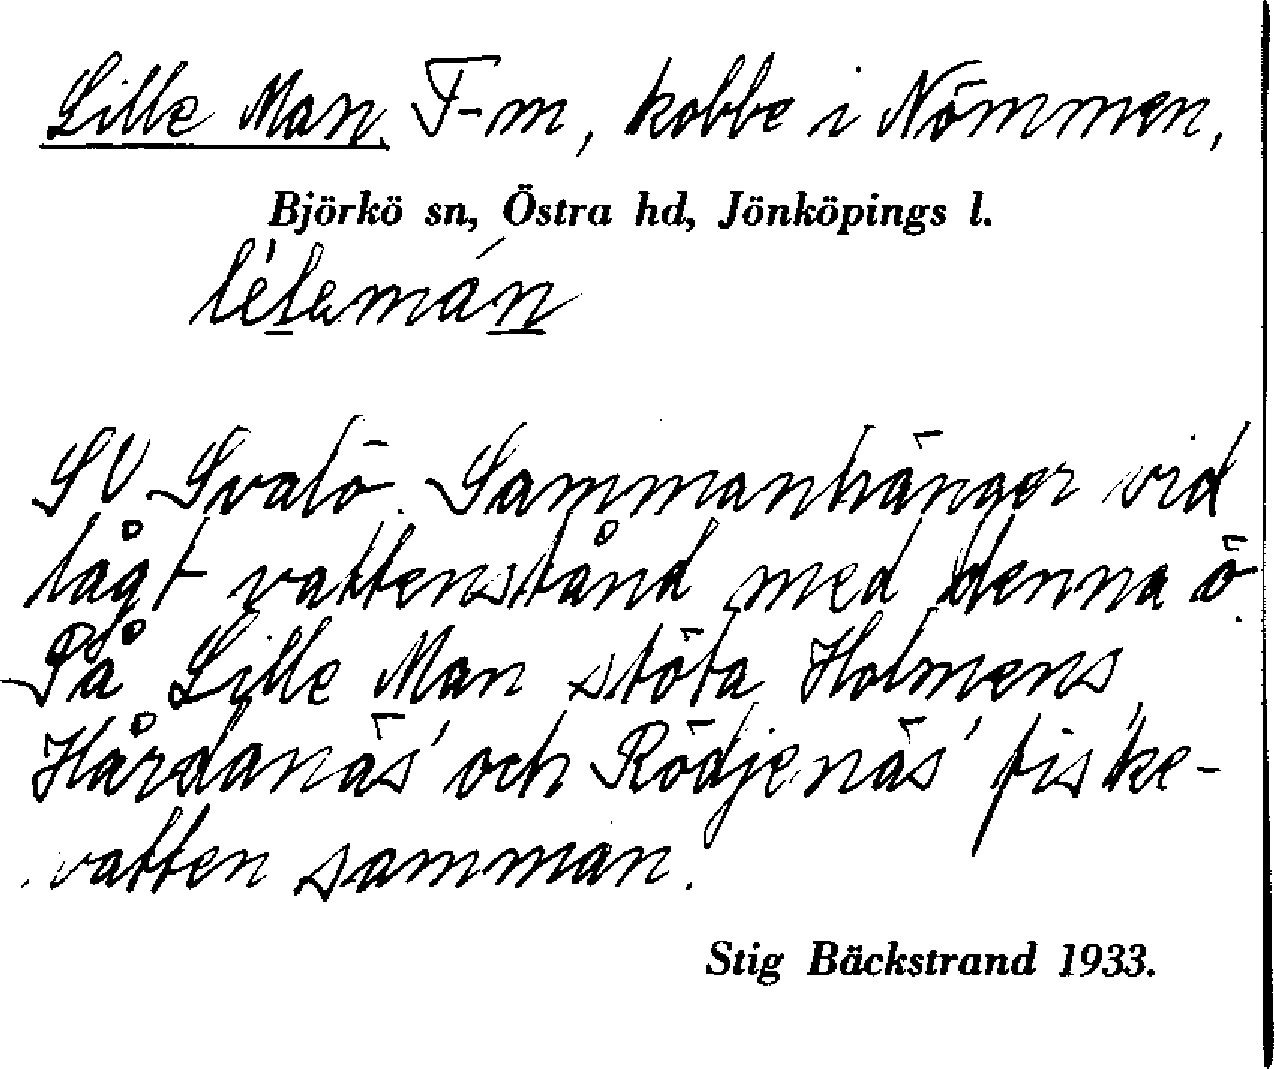 Lille Man, F-m, kobbe i Nömmen,
Björkö sn, Östra hd, Jönköpings l.
SV Svalö. Sammanhänger vid
lågt vattenstånd med denna ö.
På Lille Man stöta Holmens,
Hårdanäs' och Rödjenäs' fiske-
vatten samman.
Stig Bäckstrand 1933.